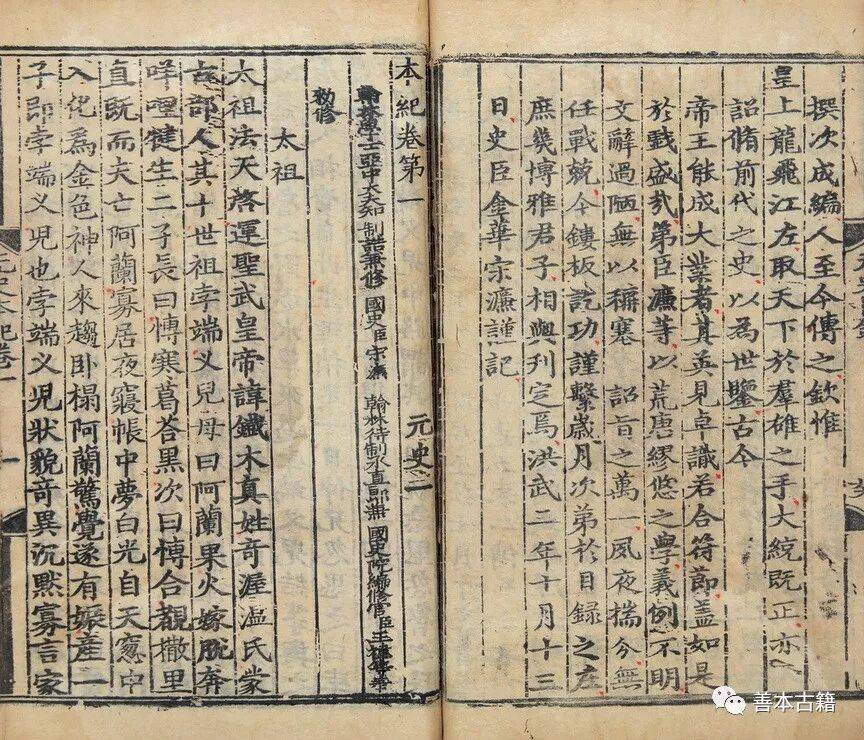 撰次成編人至今傳之欽惟
皇上龍飛江左取天下於羣雄之手大統既正亦
詔脩前代之史以為世鑒古今
帝王能成大業者其英見卓識若合符節盖如是
於戲盛㢤第臣濂等以荒唐繆悠之學義例不明
文辭過陋無以稱塞 詔旨之萬一夙夜揣今無
任戰兢今鏤板訖功謹繫歲月次第於目録之左
庶幾博雅君子相與刊定焉洪武二年十月十三
日史臣金華宋濂謹記
本紀卷第一 元史一
翰林學士亞中大夫知 制誥兼修 國史臣宋濂 翰林待制承直郎兼 國史院編修官臣王禕等奉
敕修
太祖
太祖法天啓運聖武皇帝諱鐵木真姓奇渥温氏蒙
古部人其十世祖孛端义兒母曰阿蘭果火嫁脫奔
咩哩犍生二子長曰博寒葛荅黑次曰博合覩撒里
直既而夫亡阿蘭寡居夜寢帳中夢白光自天窻中
入化爲金色神人來趨卧榻阿蘭驚覺遂有娠產一
子即孛端义兒也孛端义兒狀貌奇異沉默寡言家
元史本紀卷一
一
善本古籍